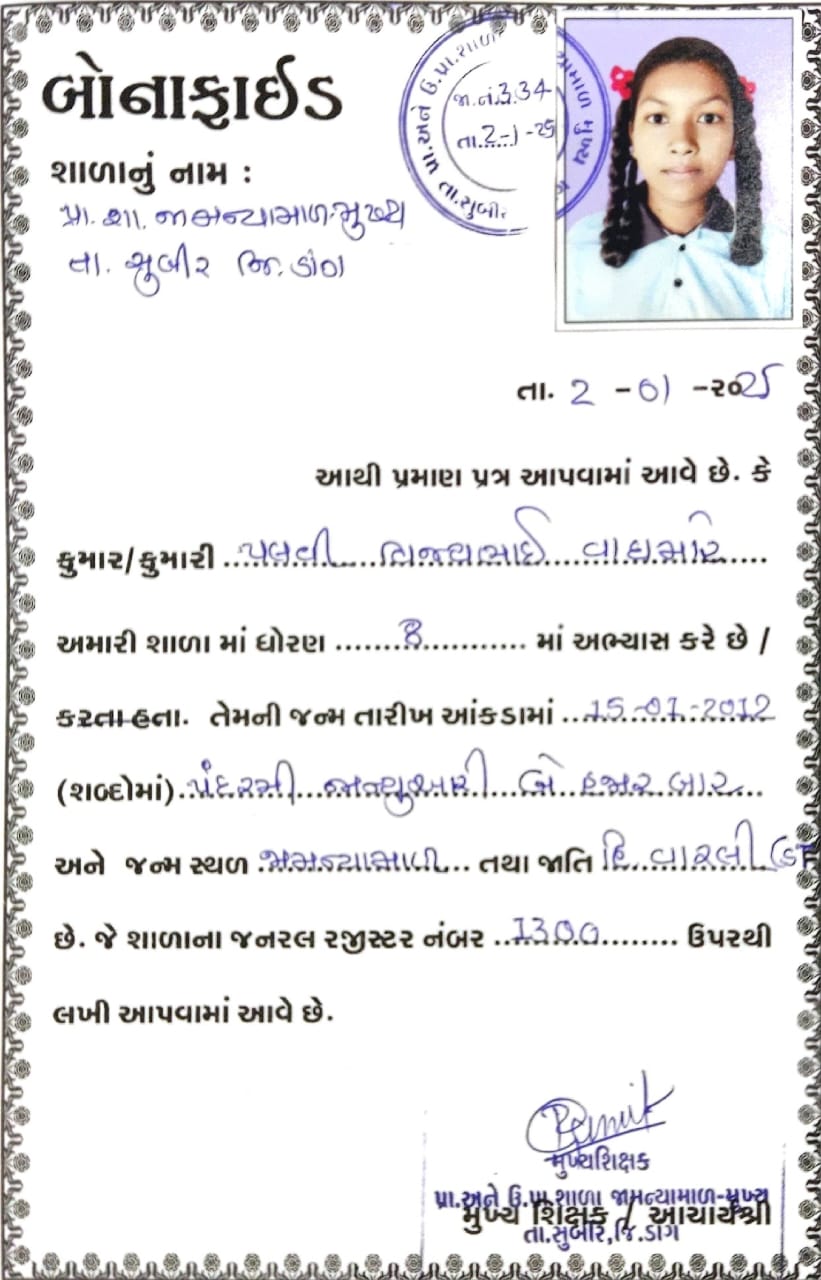 બોનાફાઈડ
શાળાનું નામ :
પ્રા. શા. જામન્યામાળ-મુખ્ય
તા. સુબીર જિ. ડાંગ
પ્રા.અને ઉ.પ્રા.શાળા
જા.નં.334
તા.2-1-25
તા.સુબીર
તા. 2 - 01 - ૨૦25
આથી પ્રમાણ પત્ર આપવામાં આવે છે. કે
કુમાર/કુમારી પલવી વિજયભાઈ વાઘમારે
અમારી શાળા માં ધોરણ 8 માં અભ્યાસ કરે છે /
કરતા હતા. તેમની જન્મ તારીખ આંકડામાં 15-01-2012
(શબ્દોમાં) પંદરમી જાન્યુઆરી બે હજાર બાર
અને જન્મ સ્થળ જામન્યામાળ તથા જાતિ હિ વારલી
છે. જે શાળાના જનરલ રજીસ્ટર નંબર 1300 ઉપરથી
લખી આપવામાં આવે છે.
મુખ્યશિક્ષક
પ્રા.અને ઉ.પ્રા.શાળા જામન્યામાળ-મુખ્ય
મુખ્ય શિક્ષક / આચાર્યશ્રી
તા.સુબીર,જિ.ડાંગ